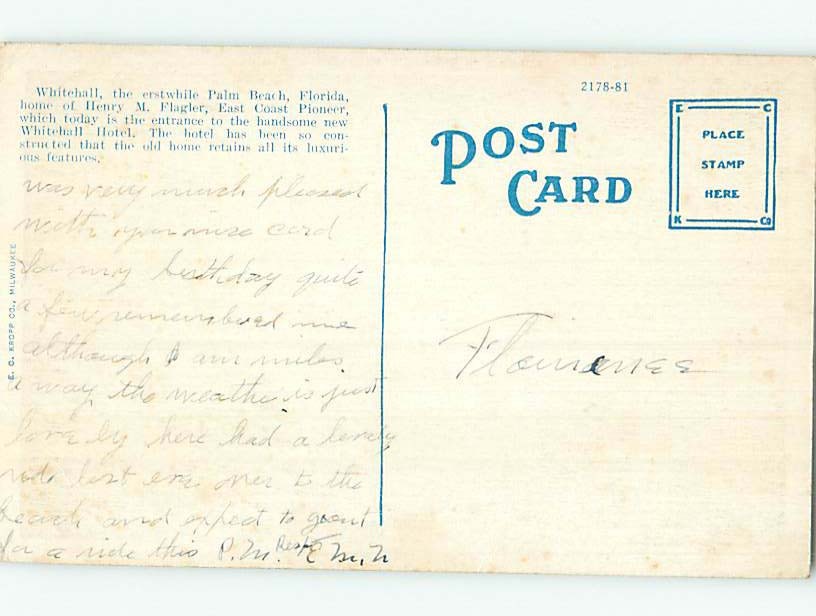 Whitehall, the erstwhile Palm Beach, Florida,
home of Henry M. Flagler, East Coast Pioneer,
which today is the entrance to the handsome new
Whitehall Hotel. The hotel has been so con-
structed that the old home retains all its luxuri-
ous features.
was very much pleased
with your nice card
for my birthday quite
a few remembered me
although I am miles
away the weather is just
lovely here had a lovely
ride last eve over to the
beach and expect to go out
for a ride this P.M.
E. C. KROPP CO., MILWAUKEE
2178-81
POST
CARD
E C
PLACE
STAMP
HERE
K Co